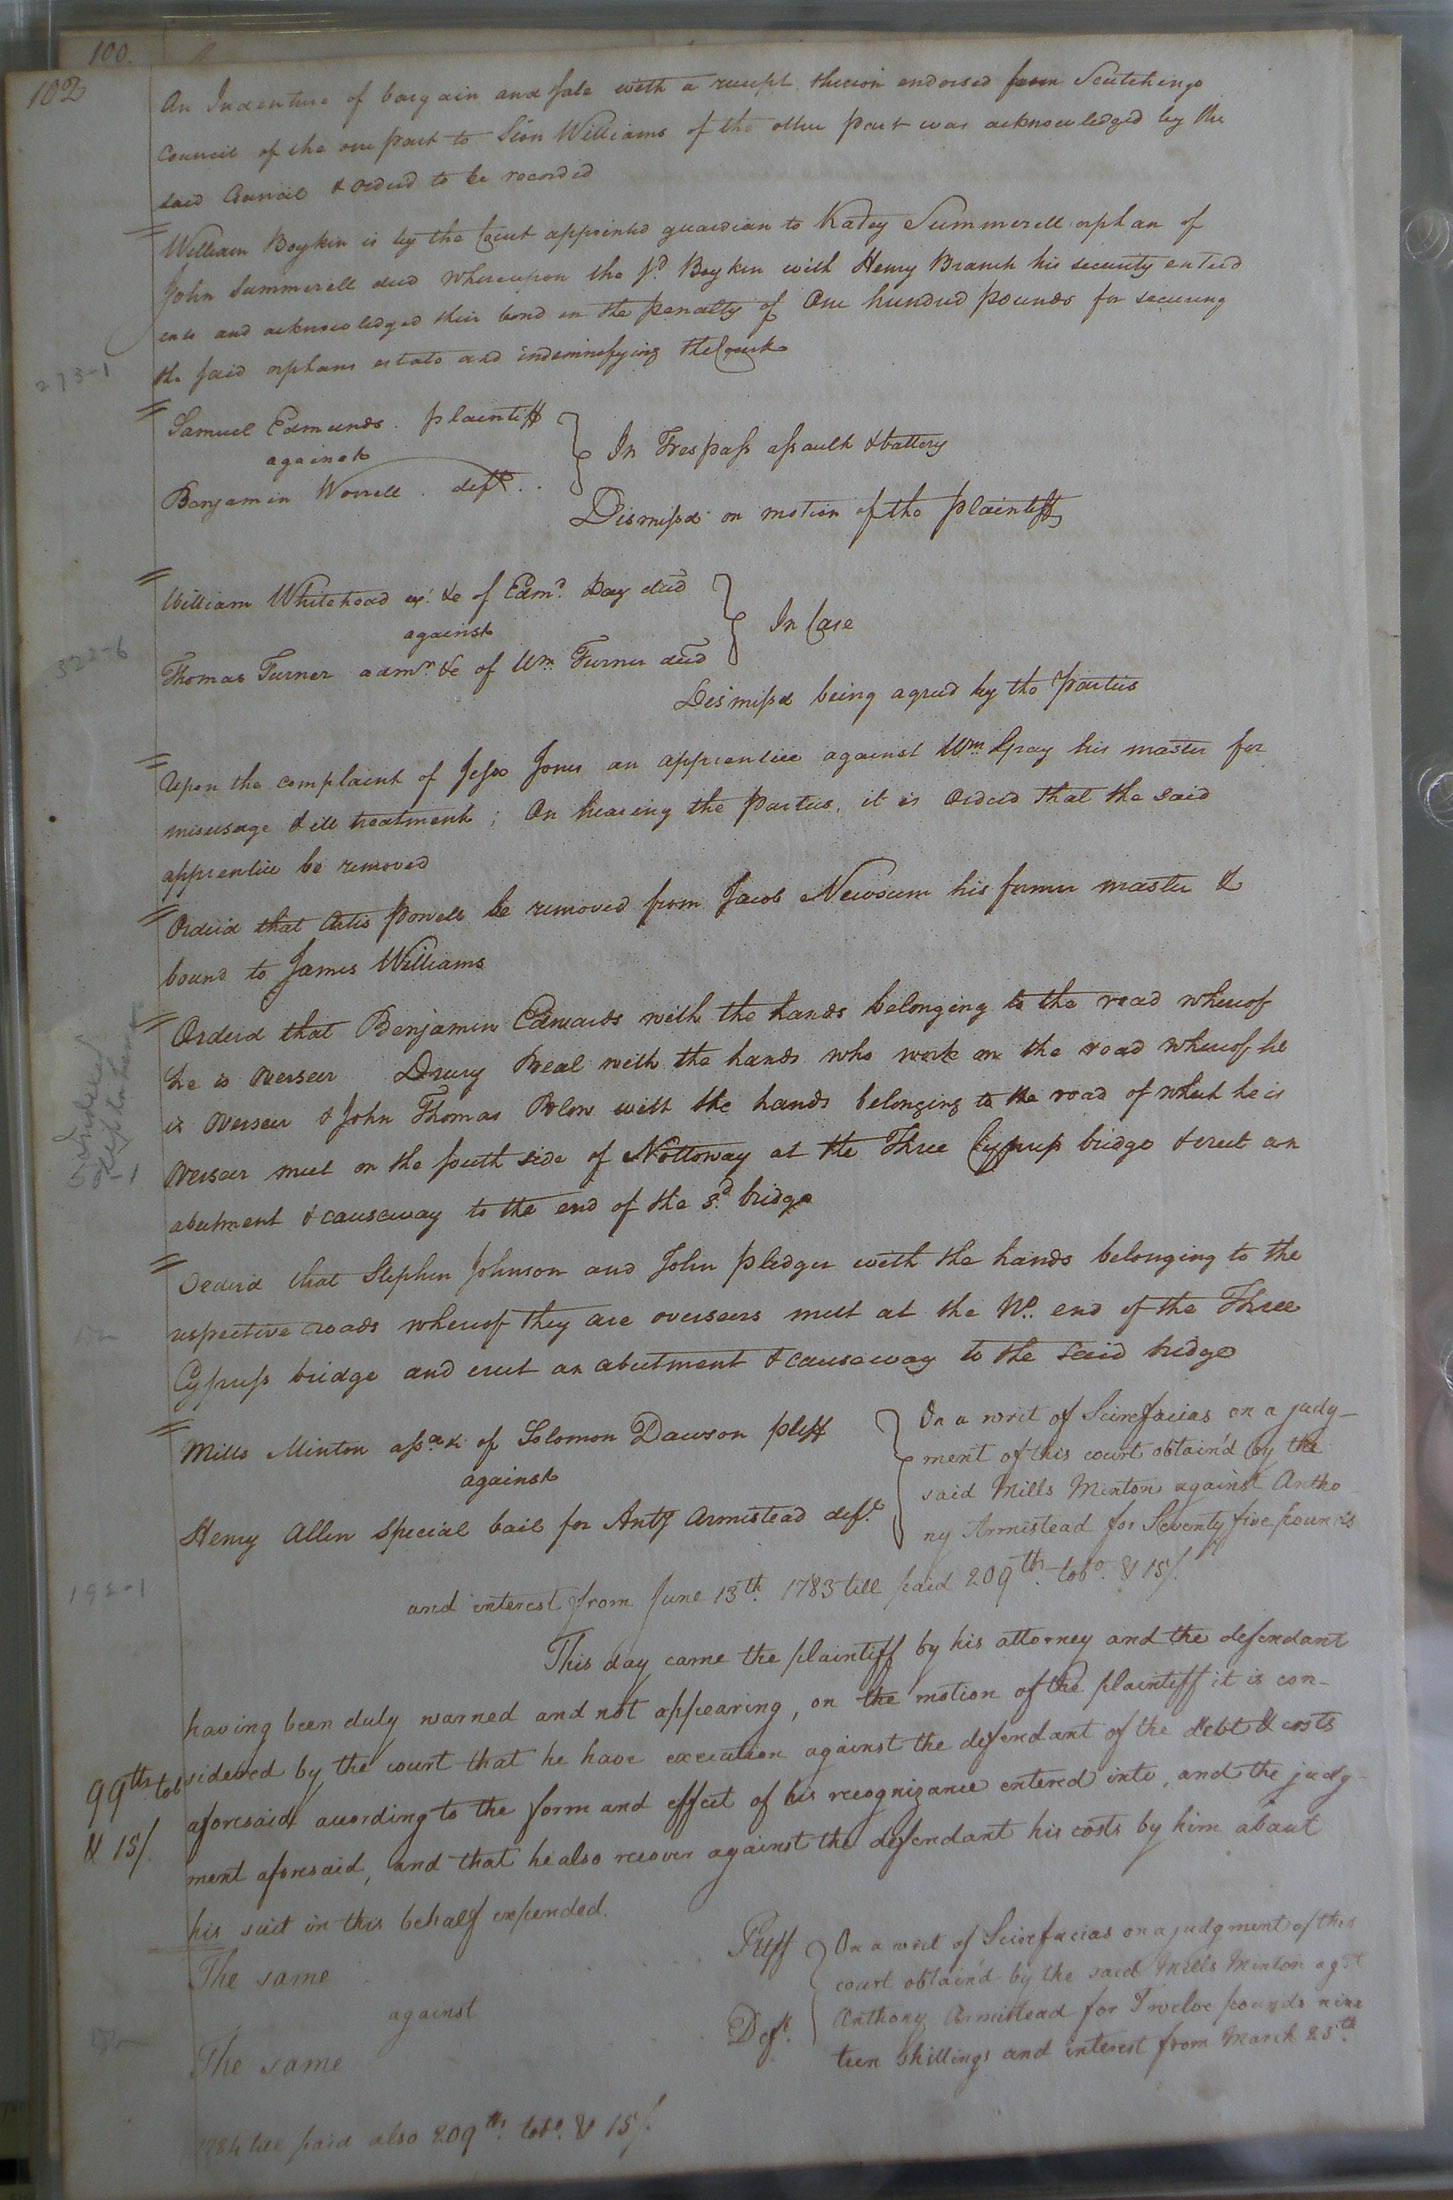 100.
102
An Indenture of bargain and sale with a receipt thereon endorsed from Scutchings
Council of the one part to Sion Williams of the other part was acknowledged by the
said Council & ordered to be recorded
William Boykin is by the Court appointed guardian to Katey Summerell orphan of
John Summerell decd whereupon the sd. Boykin with Henry Branch his security entered
into and acknowledged their bond in the penalty of One hundred pounds for securing
the said orphans estate and indemnifying the Court
273-1
Samuel Edmunds . plaintiff
against
Benjamin Worrell . deft. . .
In Trespass assault & battery
Dismissd on motion of the Plaintiff
William Whitehead exr. &c of Edmd. Day decd
against
Thomas Turner admr. &c of Wm. Turner decd
In Case
322-6
Dismissd being agreed by the Parties
Upon the complaint of Jesse Jones an apprentice against Wm Gray his master for
misusage & ill treatment ; On hearing the Parties, it is Ordered that the said
apprentice be removed
Orderd that Artis Powell be removed from Jacob Newsum his former master &
bound to James Williams
Orderd that Benjamin Edwards with the hands belonging to the road whereof
he is Overseer Drury Beal with the hands who work on the road whereof he
is Overseer & John Thomas Blow with the hands belonging to the road of which he is
Overseer meet on the south side of Nottoway at the Three Cypress bridge & erect an
abutment & causeway to the end of the sd. bridge
Orderd that Stephen Johnson and John Pledger with the hands belonging to the
respective roads whereof they are overseers meet at the No. end of the Three
Cypress bridge and erect an abutment & causeway to the said bridge
Mills Minton assee. &c of Solomon Dawson pltff
against
Henry Allen Special bail for Anty Armistead deft.
On a writ of Scirefacias on a judg-
ment of this court obtain'd by the
said Mills Minton against Antho
ny Armistead for Seventy five pounds
and interest from June 13th. 1783 till paid 209 th. tobo. & 15/.
192-1
This day came the plaintiff by his attorney and the defendant
having been duly warned and not appearing, on the motion of the plaintiff it is con-
sidered by the court that he have execution against the defendant of the debt & costs
aforesaid according to the form and effect of his recognizance entered into, and the judg-
ment aforesaid, and that he also recover against the defendant his costs by him about
his suit in this behalf expended.
99 th. tob
& 15/.
The same
against
The same
Pltff
Deft.
On a writ of Scirefacias on a judgment of this
court obtain'd by the said Mills Minton agst
Anthony Armistead for Twelve pounds nine
teen shillings and interest from March 25th.
1784 till paid also 209 th. tobo. & 15/.